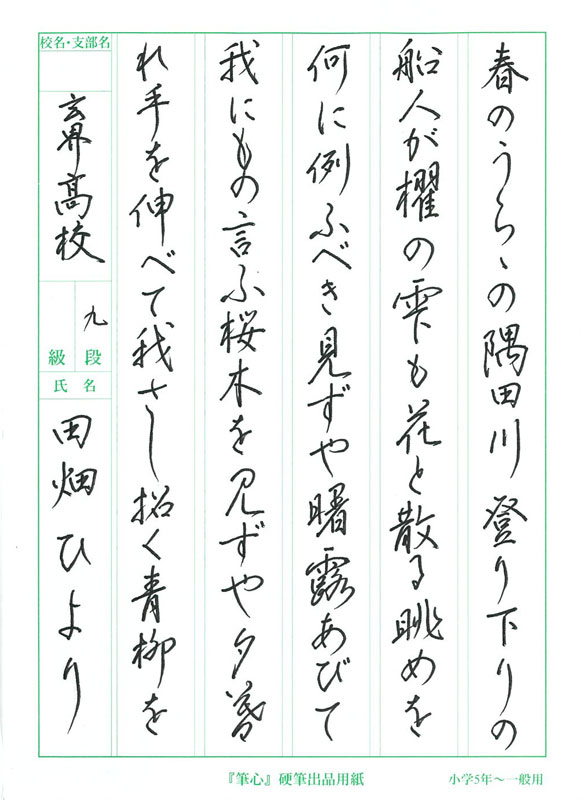 春のうらゝの隅田川登り下りの
船人が櫂の雫も花と散る眺めを
何に例ふべき見ずや曙露あびて
我にもの言ふ桜木を見ずや夕暮
れ手を伸べて我さし招く青柳を
校名・支部名
玄界高校
九
段
級
氏名
田畑ひより
『筆心』硬筆出品用紙
小学5年～一般用